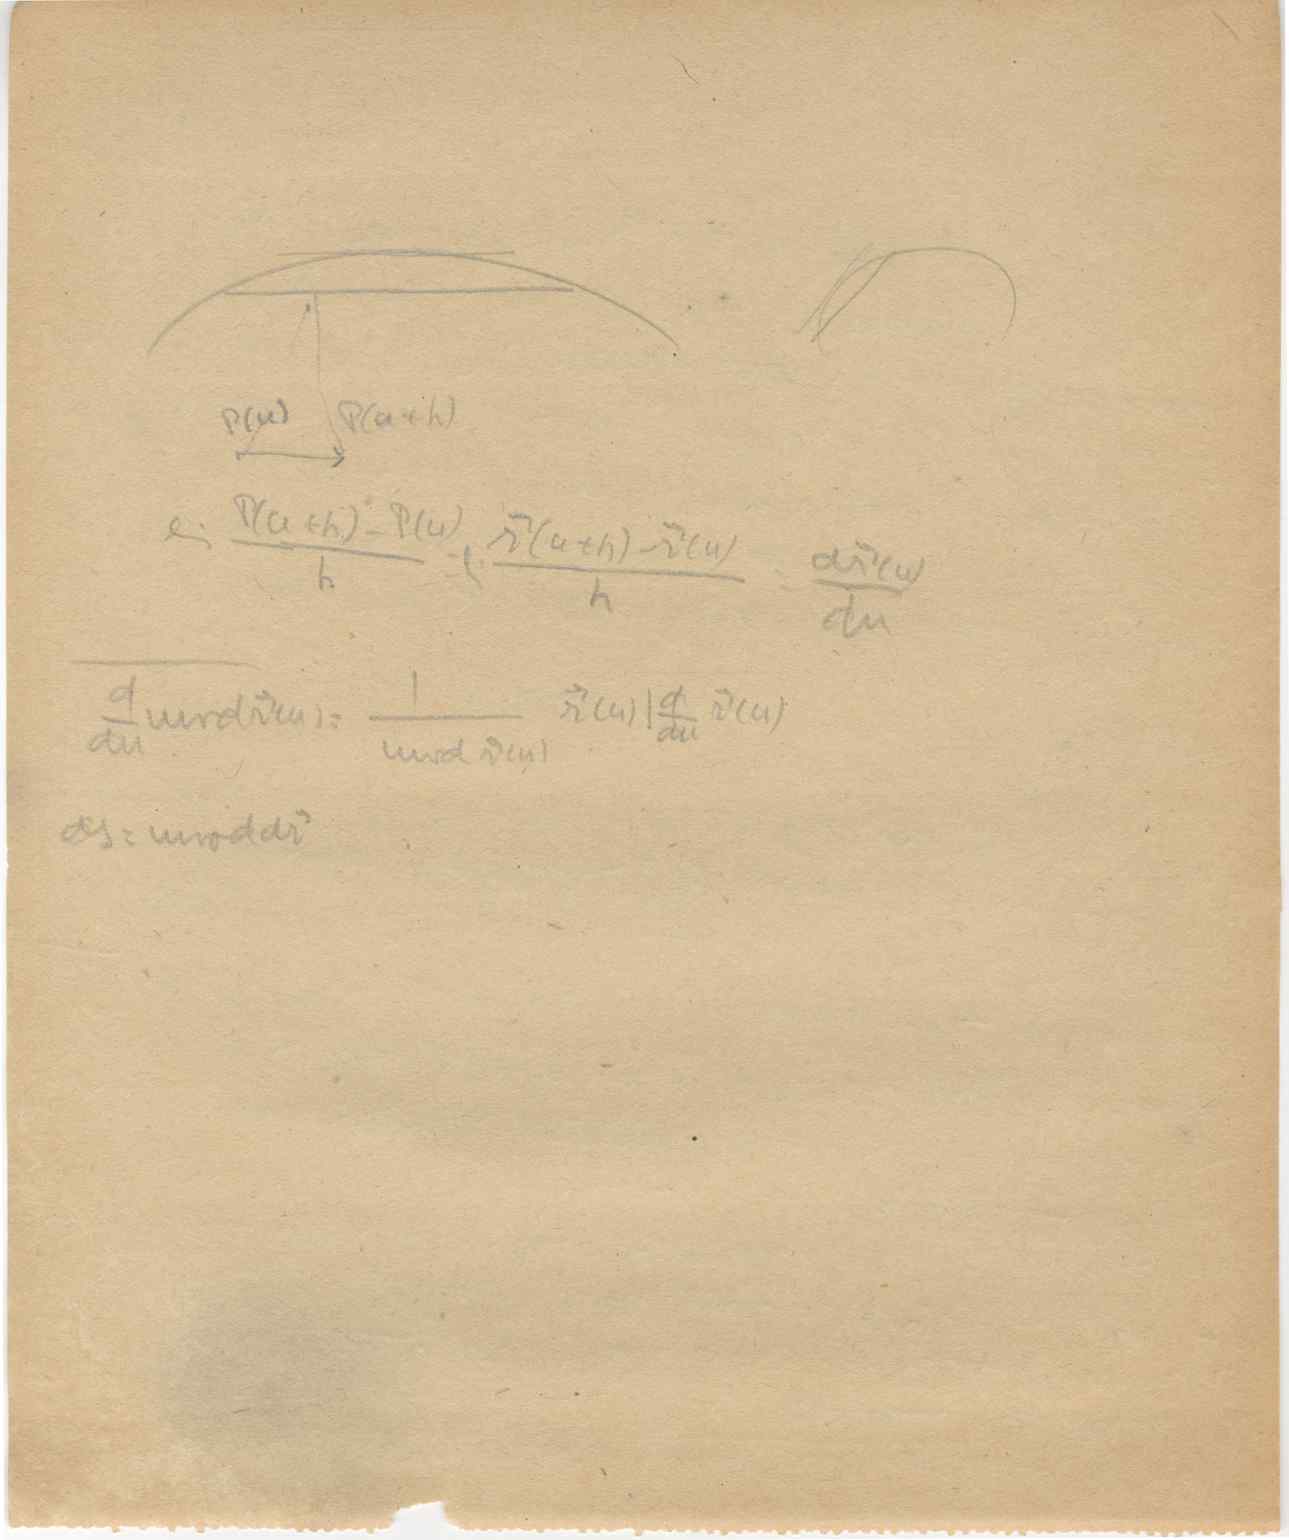 P(u) P(u+h)
P(u+h) - P(u) / h = r⃗(u+h) - r⃗(u) / h = dr⃗(u) / du
d/du mod r⃗(u) = 1 / mod r⃗(u) r⃗(u) | d/du r⃗(u)
ds = mod dr⃗